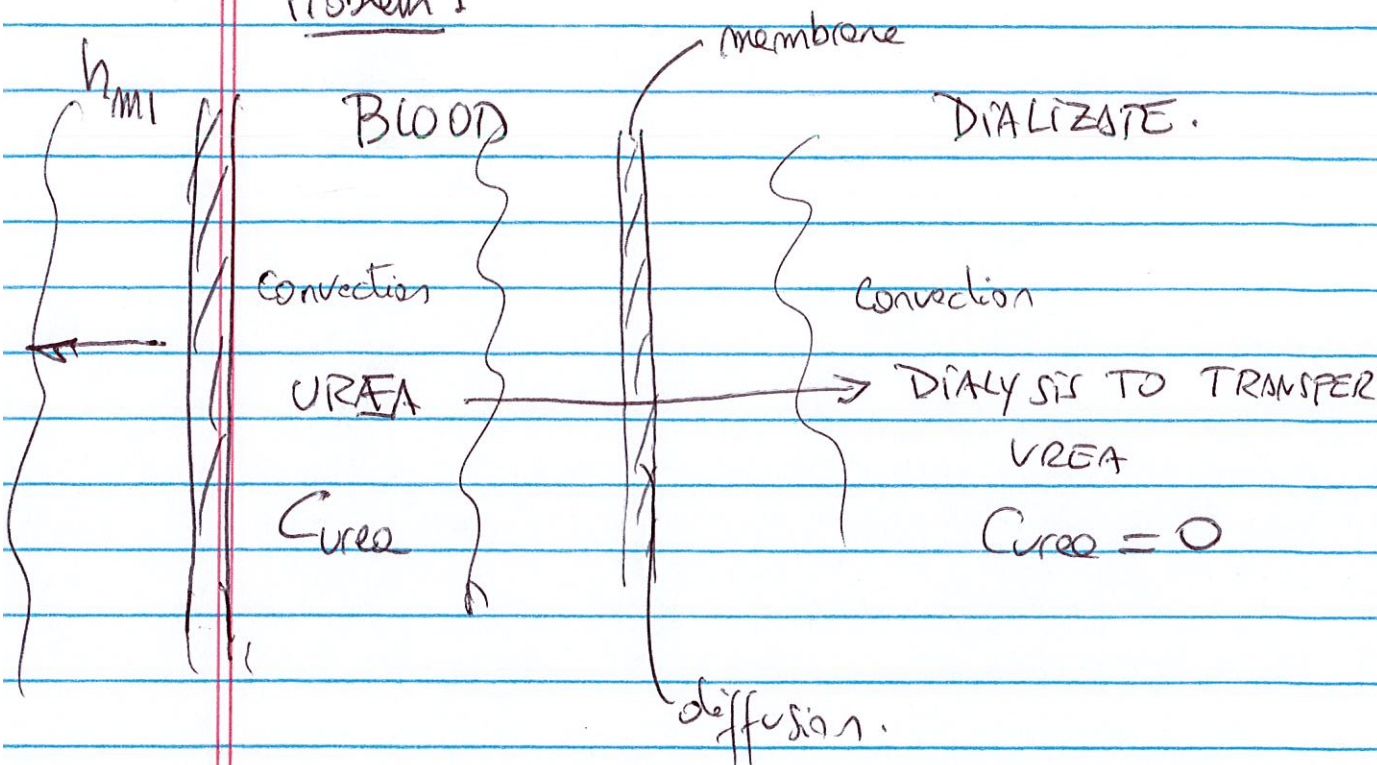 Problem 1
membrane
hm1
BLOOD
DIALIZATE.
Convection
Convection
URÆA
DIALYSIS TO TRANSFER
UREA
Curea
Curea = 0
diffusion.